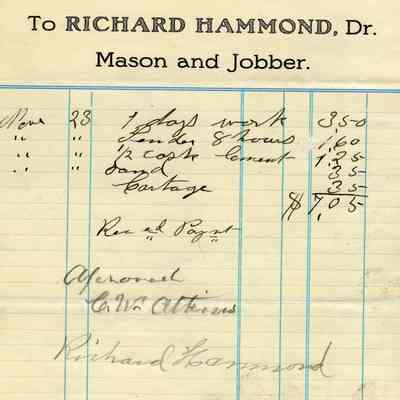 To RICHARD HAMMOND, Dr.
Mason and Jobber.
Nov 23 1 days work 3,50
" " Tender 8 hours 1,60
" " 1/2 cask Cement 1,25
" " Sand 35
Cartage 35
$ 7,05
Rec ed Paymt
Approved
C. Wm Atkins
Richard Hammond